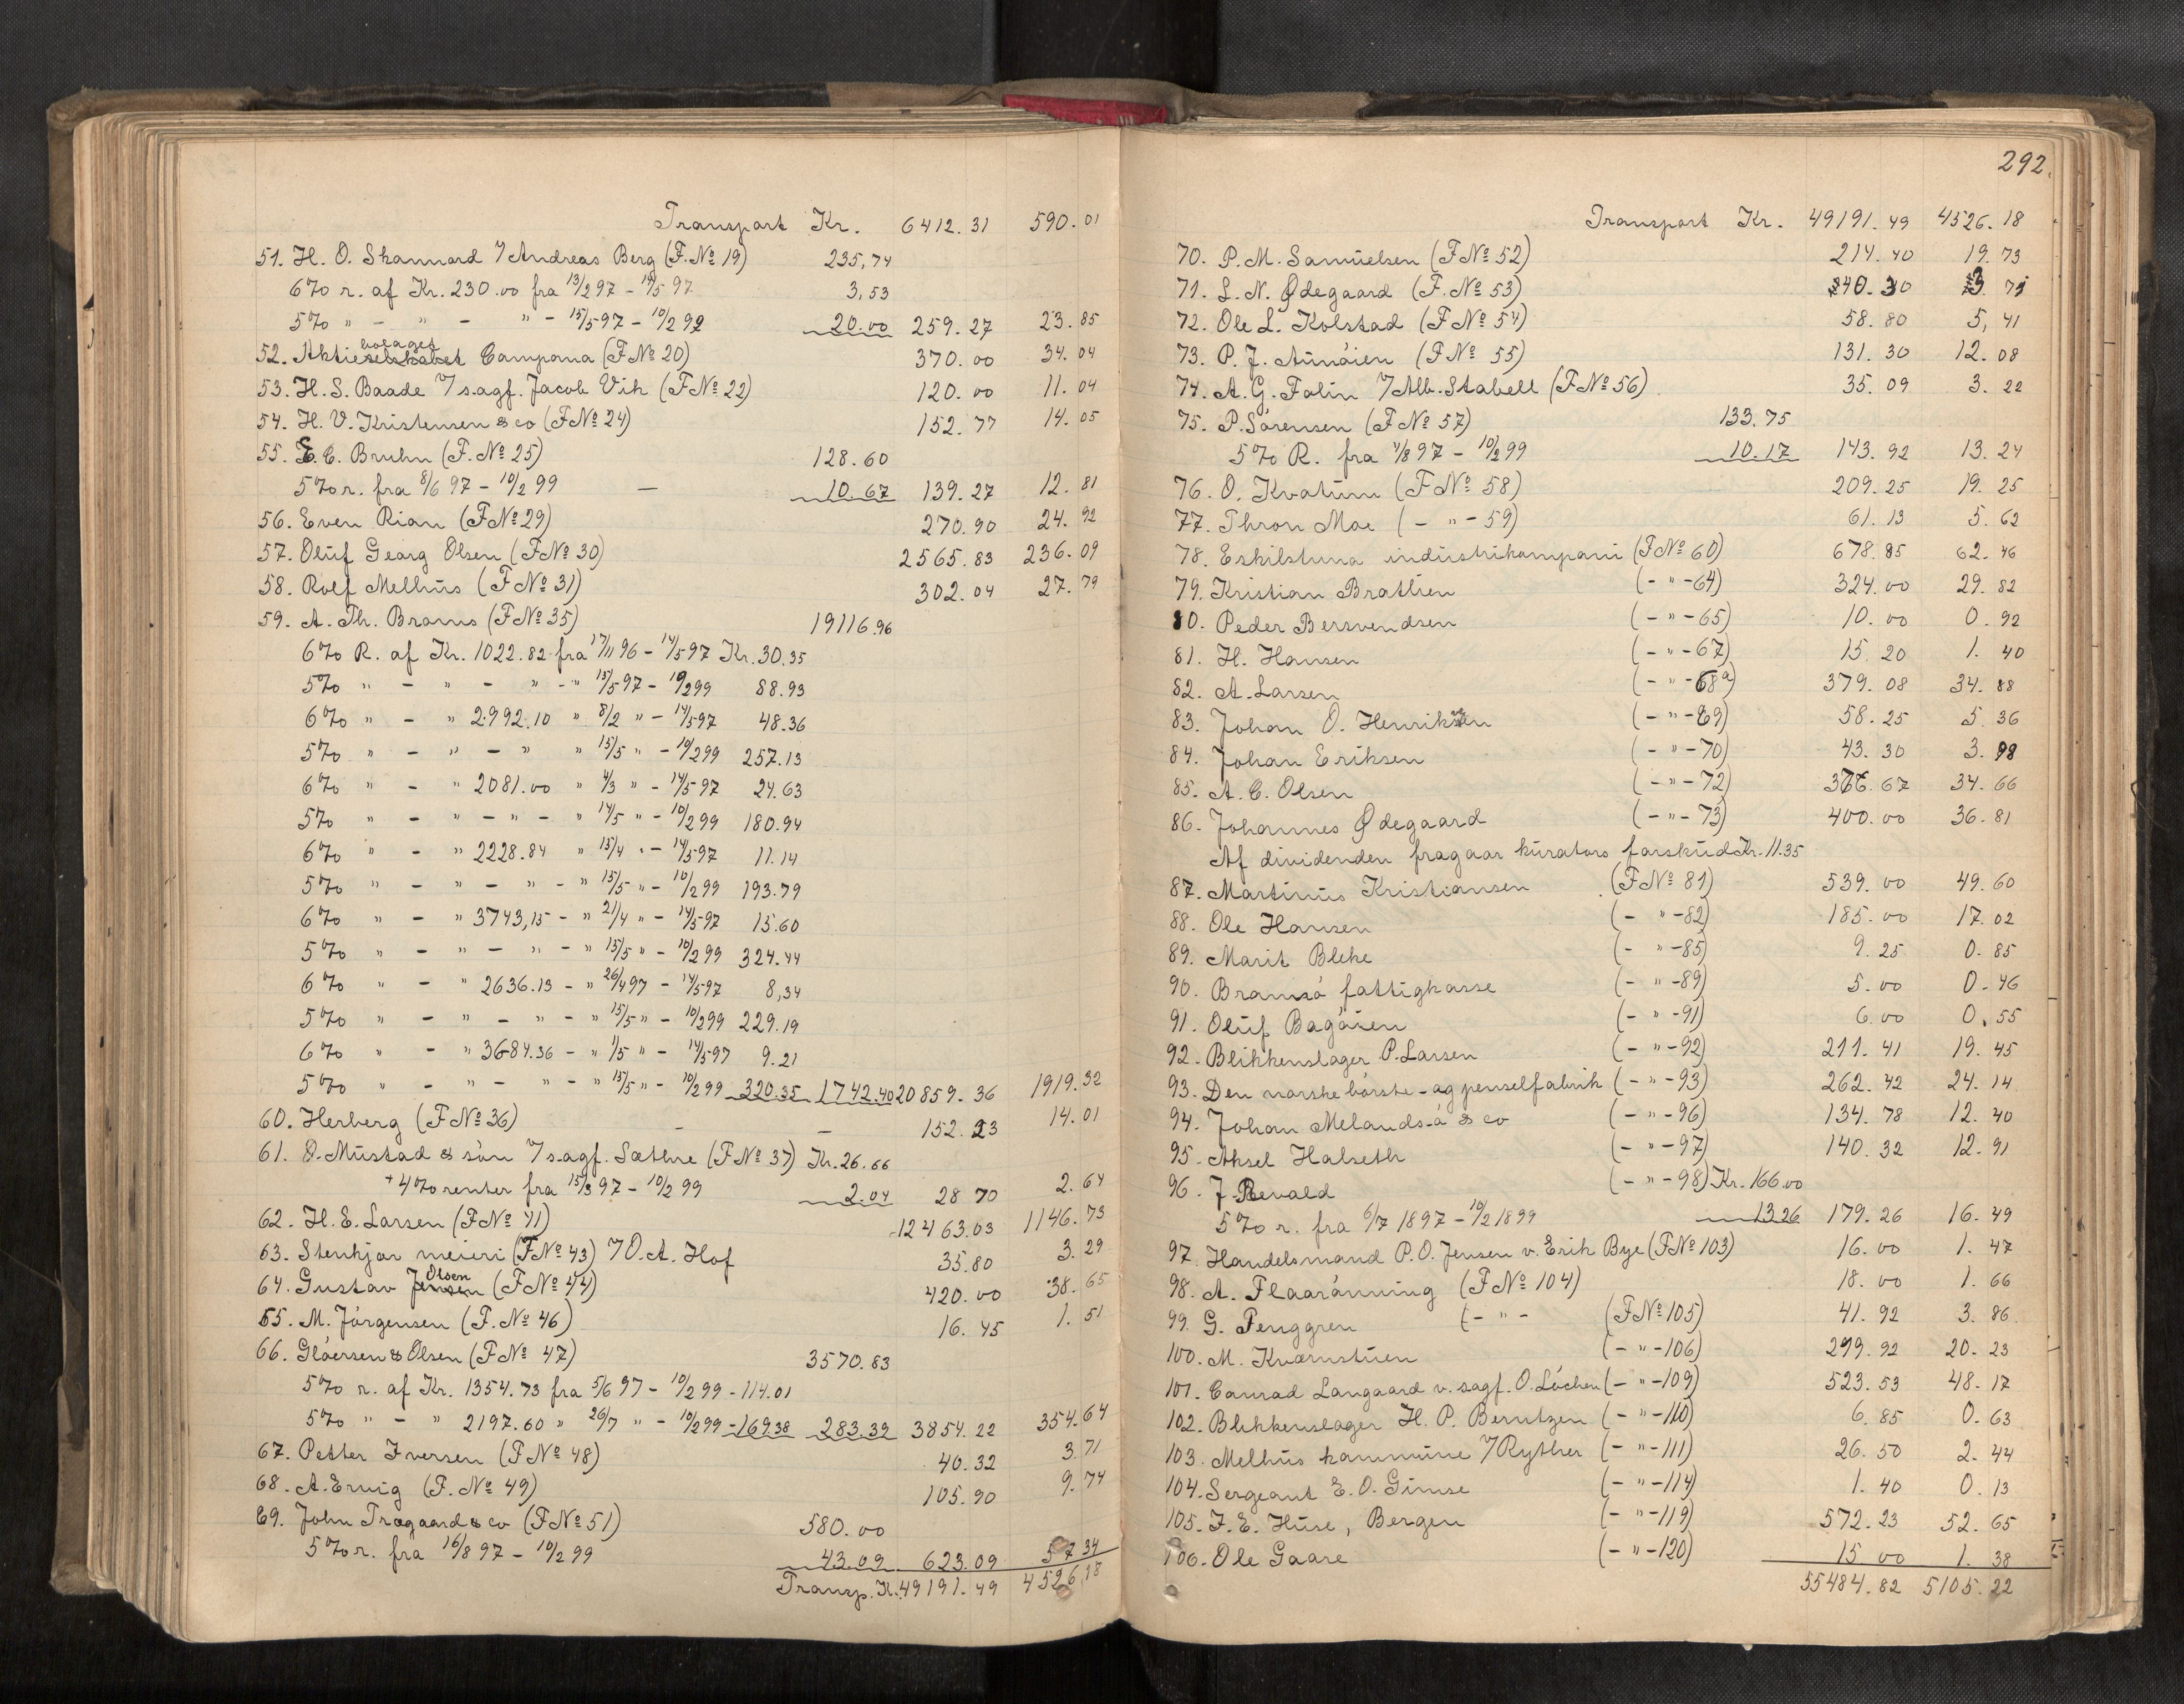 Transport Kr. 6412.31 590.01
51. H. O. Skannord 7/Andreas Berg (F.No 19) 235,74
6% r. af Kr. 230.00 fra 13/2 97 - 14/5 97 3,53
5% " - " - " - 15/5 97 - 10/2 99 20.00 259.27 23.85
bolaget
52. Aktieselskabet Campana (F No 20) 370.00 34.04
53. H. S. Baade 7/ sagf. Jacob Vik (F No 22) 120.00 11.04
54. H. V. Kristensen & co (F No 24) 152.77 14.05
55. E. C. Bruhn (F. No 25) 128.60
5% r. fra 8/6 97 - 10/2 99 — 10.67 139.27 12.81
56. Even Rian (F No 29) 270.90 24.92
57. Oluf Georg Olsen (F No 30) 2565.83 236.09
58. Rolf Melhus (F No 31) 302.04 27.79
59. A. Th. Broms (F No 35) 19116.96
6% R. af Kr. 1022.82 fra 17/11 96 - 14/5 97 Kr. 30.35
5% " - " - " - " 15/5 97 - 10/2 99 88.93
6% " - " 2992.10 " 8/2 " - 14/5 97 48.36
5% " - " - " " 15/5 " - 10/2 99 257.13
6% " - " 2081.00 " 4/3 " - 14/5 97 24.63
5% " - " - " - " 14/5 " - 10/2 99 180.94
6% " - " 2228.84 " 15/4 " - 14/5 97 11.14
5% " - " - " - " 15/5 " - 10/2 99 193.79
6% " - " 3743,15 - " 21/4 " - 14/5 97 15.60
5% " - " - " - " 15/5 " - 10/2 99 324.44
6% " - " 2636.13 - " 26/4 97 - 14/5 97 8,34
5% " - " - " - " 15/5 " - 10/2 99 229.19
6% " - " 3684.36 - " 1/5 " - 14/5 97 9.21
5% " - " - " - " 15/5 " - 10/2 99 320.35 1742.40 20859.36 1919.32
60. Herberg (F No 36) - - 152.23 14.01
61. O. Mustad & sön 7/ sagf. Sæthre (F No 37) Kr. 26.66
+ 4% renter fra 15/3 97 - 10/2 99 2.04 28 70 2.64
62. H. E. Larsen (F No 41) 12463.03 1146.73
63. Stenkjær meieri (F No 43) 7/ O. A. Hof 35.80 3.29
Olsen
64. Gustav Jensen (F No 44) 420.00 38.65
65. M. Jörgensen (F. No 46) 16.45 1.51
66. Glöersen & Olsen (F No 47) 3570.83
5% r. af Kr. 1354.73 fra 5/6 97 - 10/2 99 - 114.01
5% " - " 2197.60 " 26/7 " - 10/2 99 - 169.38 283.39 3854.22 354.64
67. Petter Iversen (F No 48) 40.32 3.71
68. A. Ervig (F. No 49) 105.90 9.74
69. John Tragaard & co (F No 51) 580.00
5% r. fra 16/8 97 - 10/2 99 43.09 623.09 57 34
Transp. K. 49191.49 4526.18
292.
Transport Kr. 49191.49 4526.18
70. P. M. Samuelsen (F No 52) 214.40 19.73
71. L. N. Ødegaard (F. No 53) 40.30 3.71
72. Ole L. Kolstad (F No 54) 58.80 5,41
73. P. J. Aunöien (F No 55) 131.30 12.08
74. A. G. Folin 7/ Alb. Stabell (F No 56) 35.09 3.22
75. P. Sörensen (F No 57) 133.75
5% R. fra 4/8 97 - 10/2 99 10.17 143.92 13.24
76. O. Kvatum (F No 58) 209.25 19.25
77. Thron Moe (- " - 59) 61.13 5.62
78. Eskilstuna industrikompani (F No 60) 678.85 62.46
79. Kristian Brathen (- " - 64) 324.00 29.82
80. Peder Bersvendsen (- " - 65) 10.00 0.92
81. H. Hansen (- " - 67) 15.20 1.40
82. A. Larsen (- " - 68a) 379.08 34.88
83. Johan O. Henriksen (- " - 69) 58.25 5.36
84. Johan Eriksen (- " - 70) 43.30 3.98
85. A. C. Olsen (- " - 72) 376.67 34.66
86. Johannes Ødegaard (- " - 73) 400.00 36.81
Af dividenden fragaar kurators forskud Kr. 11.35
87. Martinus Kristiansen (F No 81) 539.00 49.60
88. Ole Hansen (- " - 82) 185.00 17.02
89. Marit Bleke (- " - 85) 9.25 0.85
90. Bramsö fattigkasse (- " - 89) 5.00 0.46
91. Oluf Bagöien (- " - 91) 6.00 0.55
92. Blikkenslager P. Larsen (- " - 92) 211.41 19.45
93. Den norske börste- og penselfabrik (- " - 93) 262.42 24.14
94. Johan Melandsö & co (- " - 96) 134.78 12.40
95. Aksel Halseth (- " - 97) 140.32 12.91
96. J. Revald (- " - 98) Kr. 166.00
5% r. fra 6/7 1897 - 10/2 1899 13.26 179.26 16.49
97. Handelsmand P. O. Jensen v. Erik Bye (F No 103) 16.00 1.47
98. A. Flaarönning (F No 104) 18.00 1.66
99. G. Penggren (- " - (F No 105) 41.92 3.86
100. M. Kværnstuen (- " - 106) 219.92 20.23
101. Conrad Langaard v. sagf. O. Löchen (- " - 109) 523.53 48.17
102. Blikkenslager H. P. Berntzen (- " - 110) 6.85 0.63
103. Melhus kommune 7/ Ryther (- " - 111) 26.50 2.44
104. Sergeant E. O. Gimse (- " - 114) 1.40 0.13
105. J. E. Huse, Bergen (- " - 119) 572.23 52.65
106. Ole Gaare (- " - 120) 15 00 1.38
55484.82 5105.22